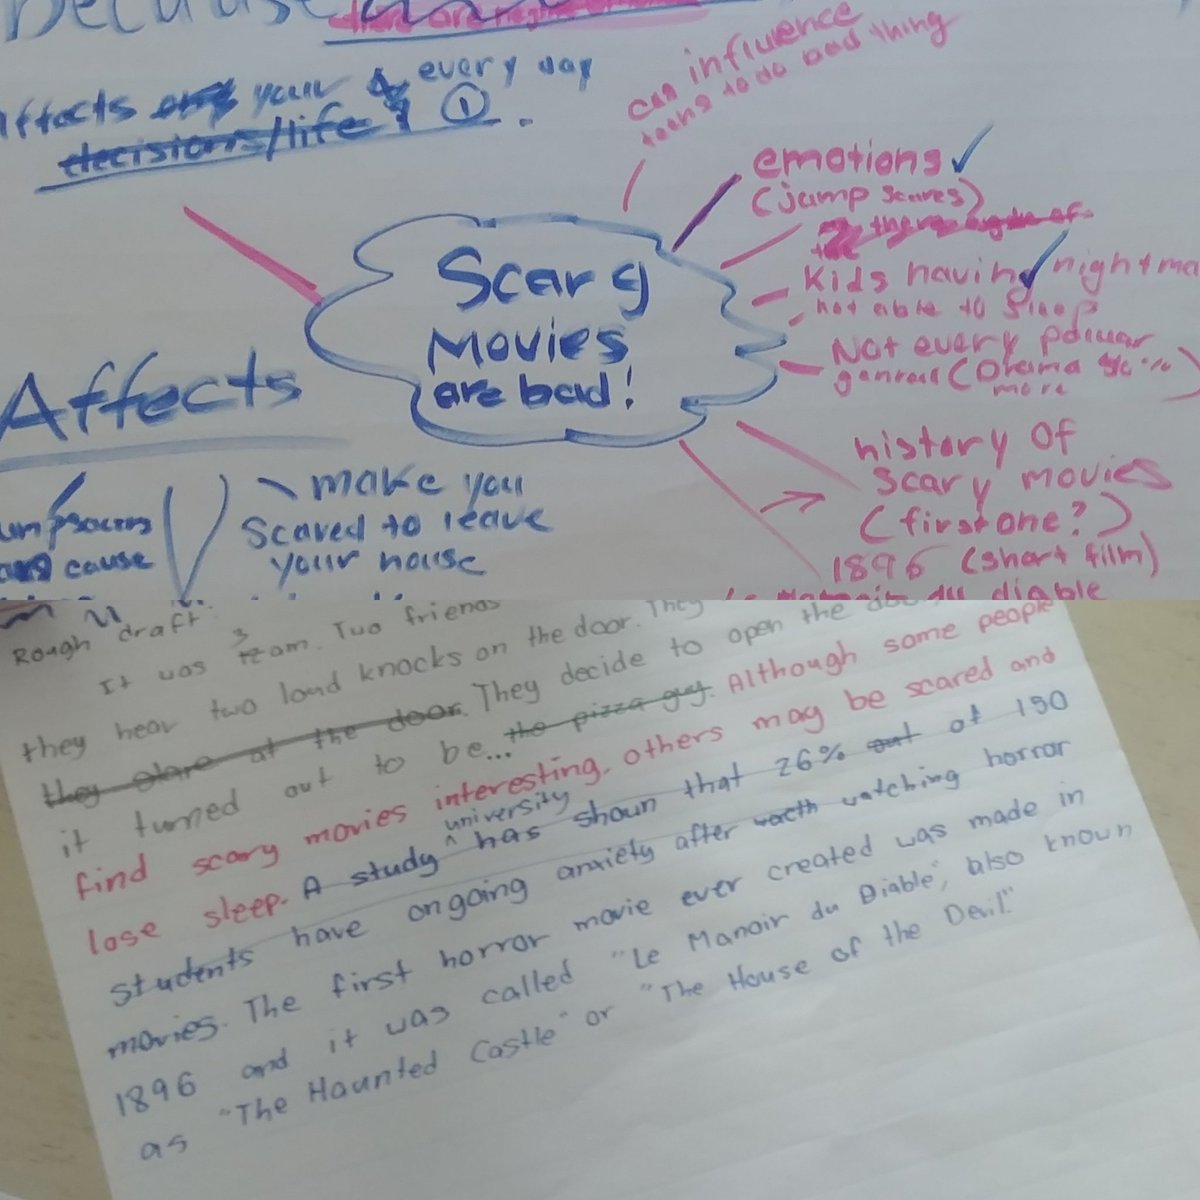 Because
affects your every day
decisions/life ①.
can influence
teens to do bad thing
emotions ✓
(jump scares)
Kids having nightma
not able to sleep
Not every
(Drama
more
history of
scary movies
(first one?)
1896 (short film)
du diable
Scary
Movies
are bad!
Affects
make you
scared to leave
your house
cause
Rough draft:
It was 3 am. Two friends
they hear two loud knocks on the door. They
they at the door. They decide to open the
it turned out to be... the pizza guy. Although some people
find scary movies interesting, others may be scared and
lose sleep. A study university has shown that 26% out of 150
students have ongoing anxiety after watching horror
movies. The first horror movie ever created was made in
1896 and it was called "Le Manoir du Diable", also known
as "The Haunted Castle" or "The House of the Devil."